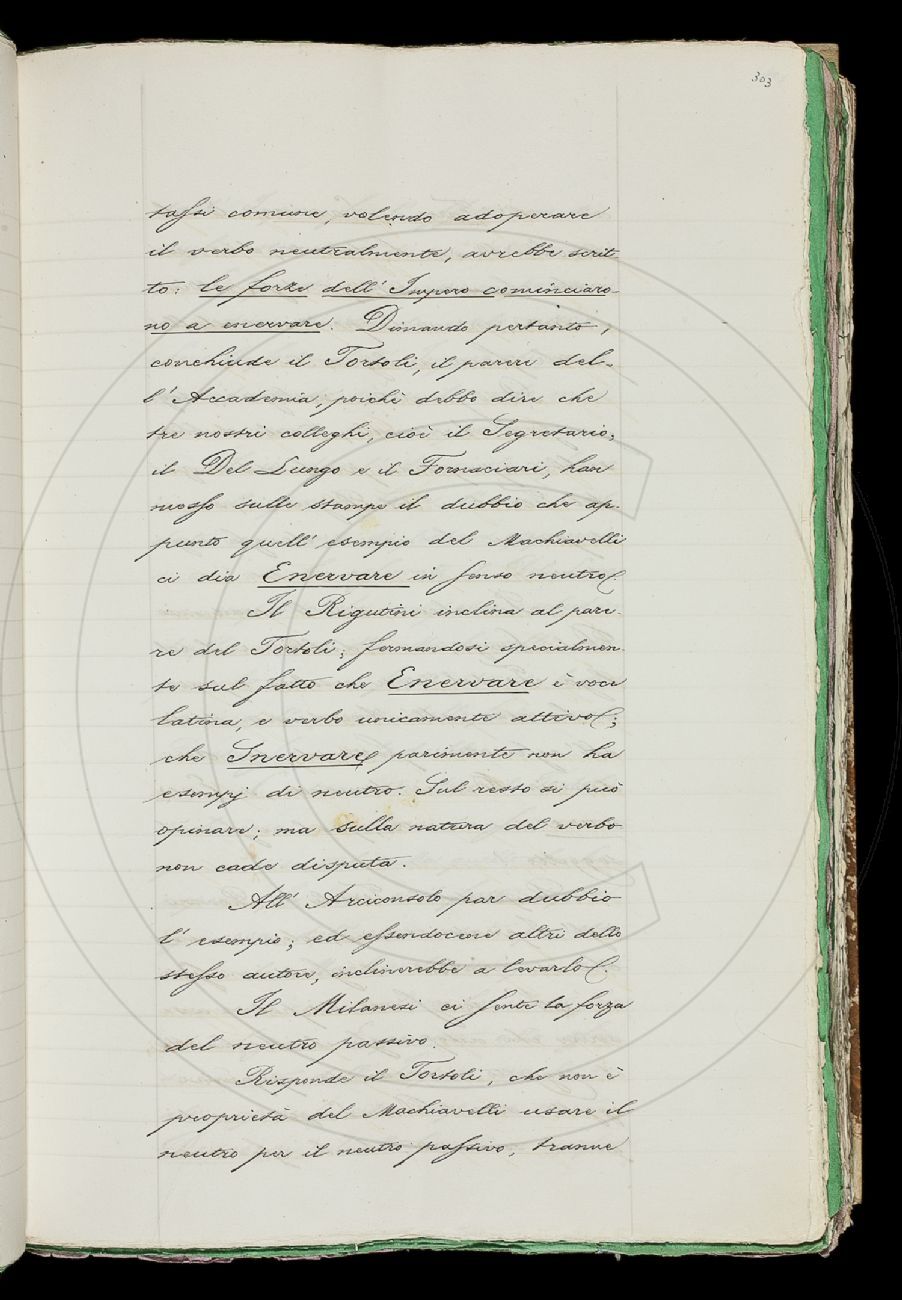 303
tassi comune, volendo adoperare
il verbo neutralmente, avrebbe scrit-
to: le forze dell' Impero cominciaro-
no a enervare. Dimando pertanto,
conchiude il Tortoli, il parere del-
l' Accademia; poichè debbo dire che
tre nostri colleghi, cioè il Segretario,
il Del Lungo e il Fornaciari, han
mosso sulle stampe il dubbio che ap-
punto quell' esempio del Machiavelli
ci dia Enervare in senso neutro
Il Rigutini inclina al pare-
re del Tortoli; fermandosi specialmen-
te sul fatto che Enervare è voce
latina, e verbo unicamente attivo;
che Snervare parimente non ha
esempj di neutro. Sul resto si può
opinare; ma sulla natura del verbo
non cade disputa.
All' Arciconsolo par dubbio
l' esempio; ed essendocene altri dello
stesso autore, inclinerebbe a levarlo.
Il Milanesi ci sente la forza
del neutro passivo.
Risponde il Tortoli, che non è
proprietà del Machiavelli usare il
neutro per il neutro passivo, tranne